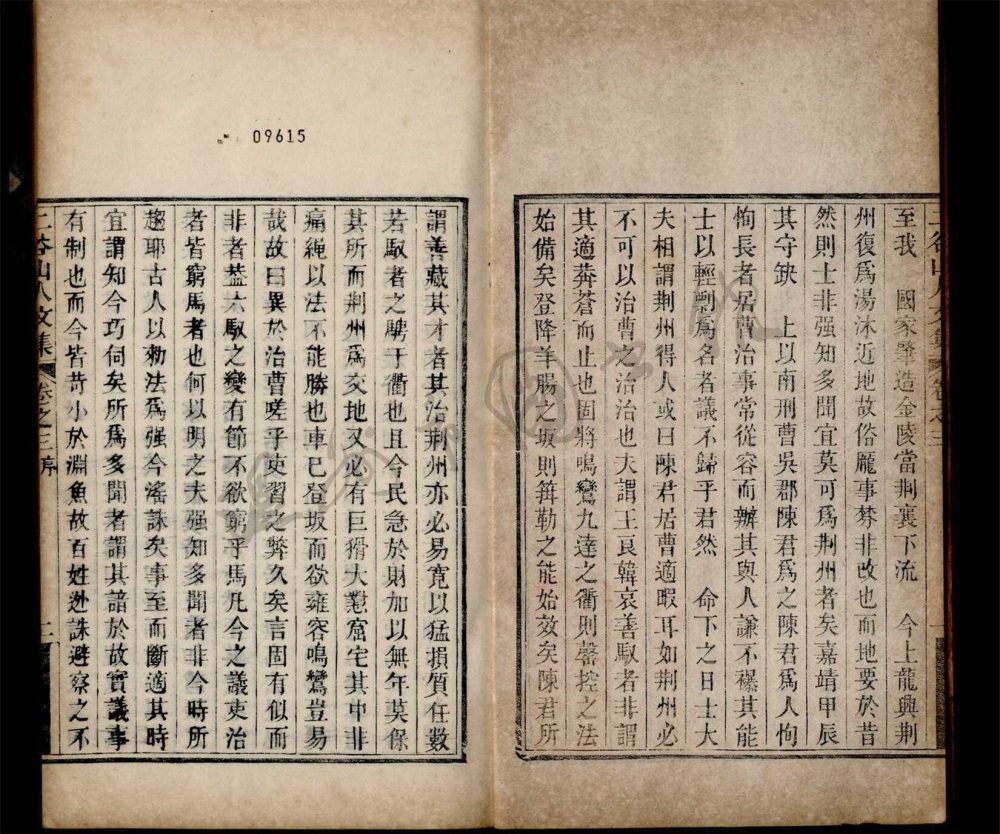 至我　國家鼎造金陵當荆襄下流　今上龍興荆
州復爲湯沐近地故俗厖事棼非改也而地要於昔
然則士非强知多聞宜莫可爲荆州者矣嘉靖甲辰
其守缺　上以南刑曹吳郡陳君爲之陳君爲人恂
恂長者居曹治事常從容而辦其與人謙不襮其能
士以輕剽爲名者議不歸乎君然　命下之日士大
夫相謂荆州得人或曰陳君居曹適暇耳如荆州必
不可以治曹之治治也夫謂王良韓哀善馭者非謂
其適莽蒼而止也固將鳴鸞九達之衢則罄控之法
始備矣登降羊腸之坂則箝勒之能始效矣陳君所
二谷山人文集
卷之三
09615
謂善藏其才者其治荆州亦必易寛以猛損質任數
若馭者之騁于衢也且今民急於財加以無年莫保
其所而荆州爲交地又必有巨猾大憝窟宅其中非
痛繩以法不能勝也車已登坂而欲雍容鳴鸞豈易
哉故曰異於治曹嗟乎吏習之弊久矣言固有似而
非者葢六馭之變有節不欲窮乎馬凡今之議吏治
者皆窮馬者也何以明之夫强知多聞者非今時所
趨耶古人以勑法爲强今滛誅矣事至而斷適其時
宜謂知今巧伺矣所爲多聞者謂其諳於故實議事
有制也而今皆苛小於淵魚故百姓逊誅避察之不
二谷山人文集
卷之三序
二